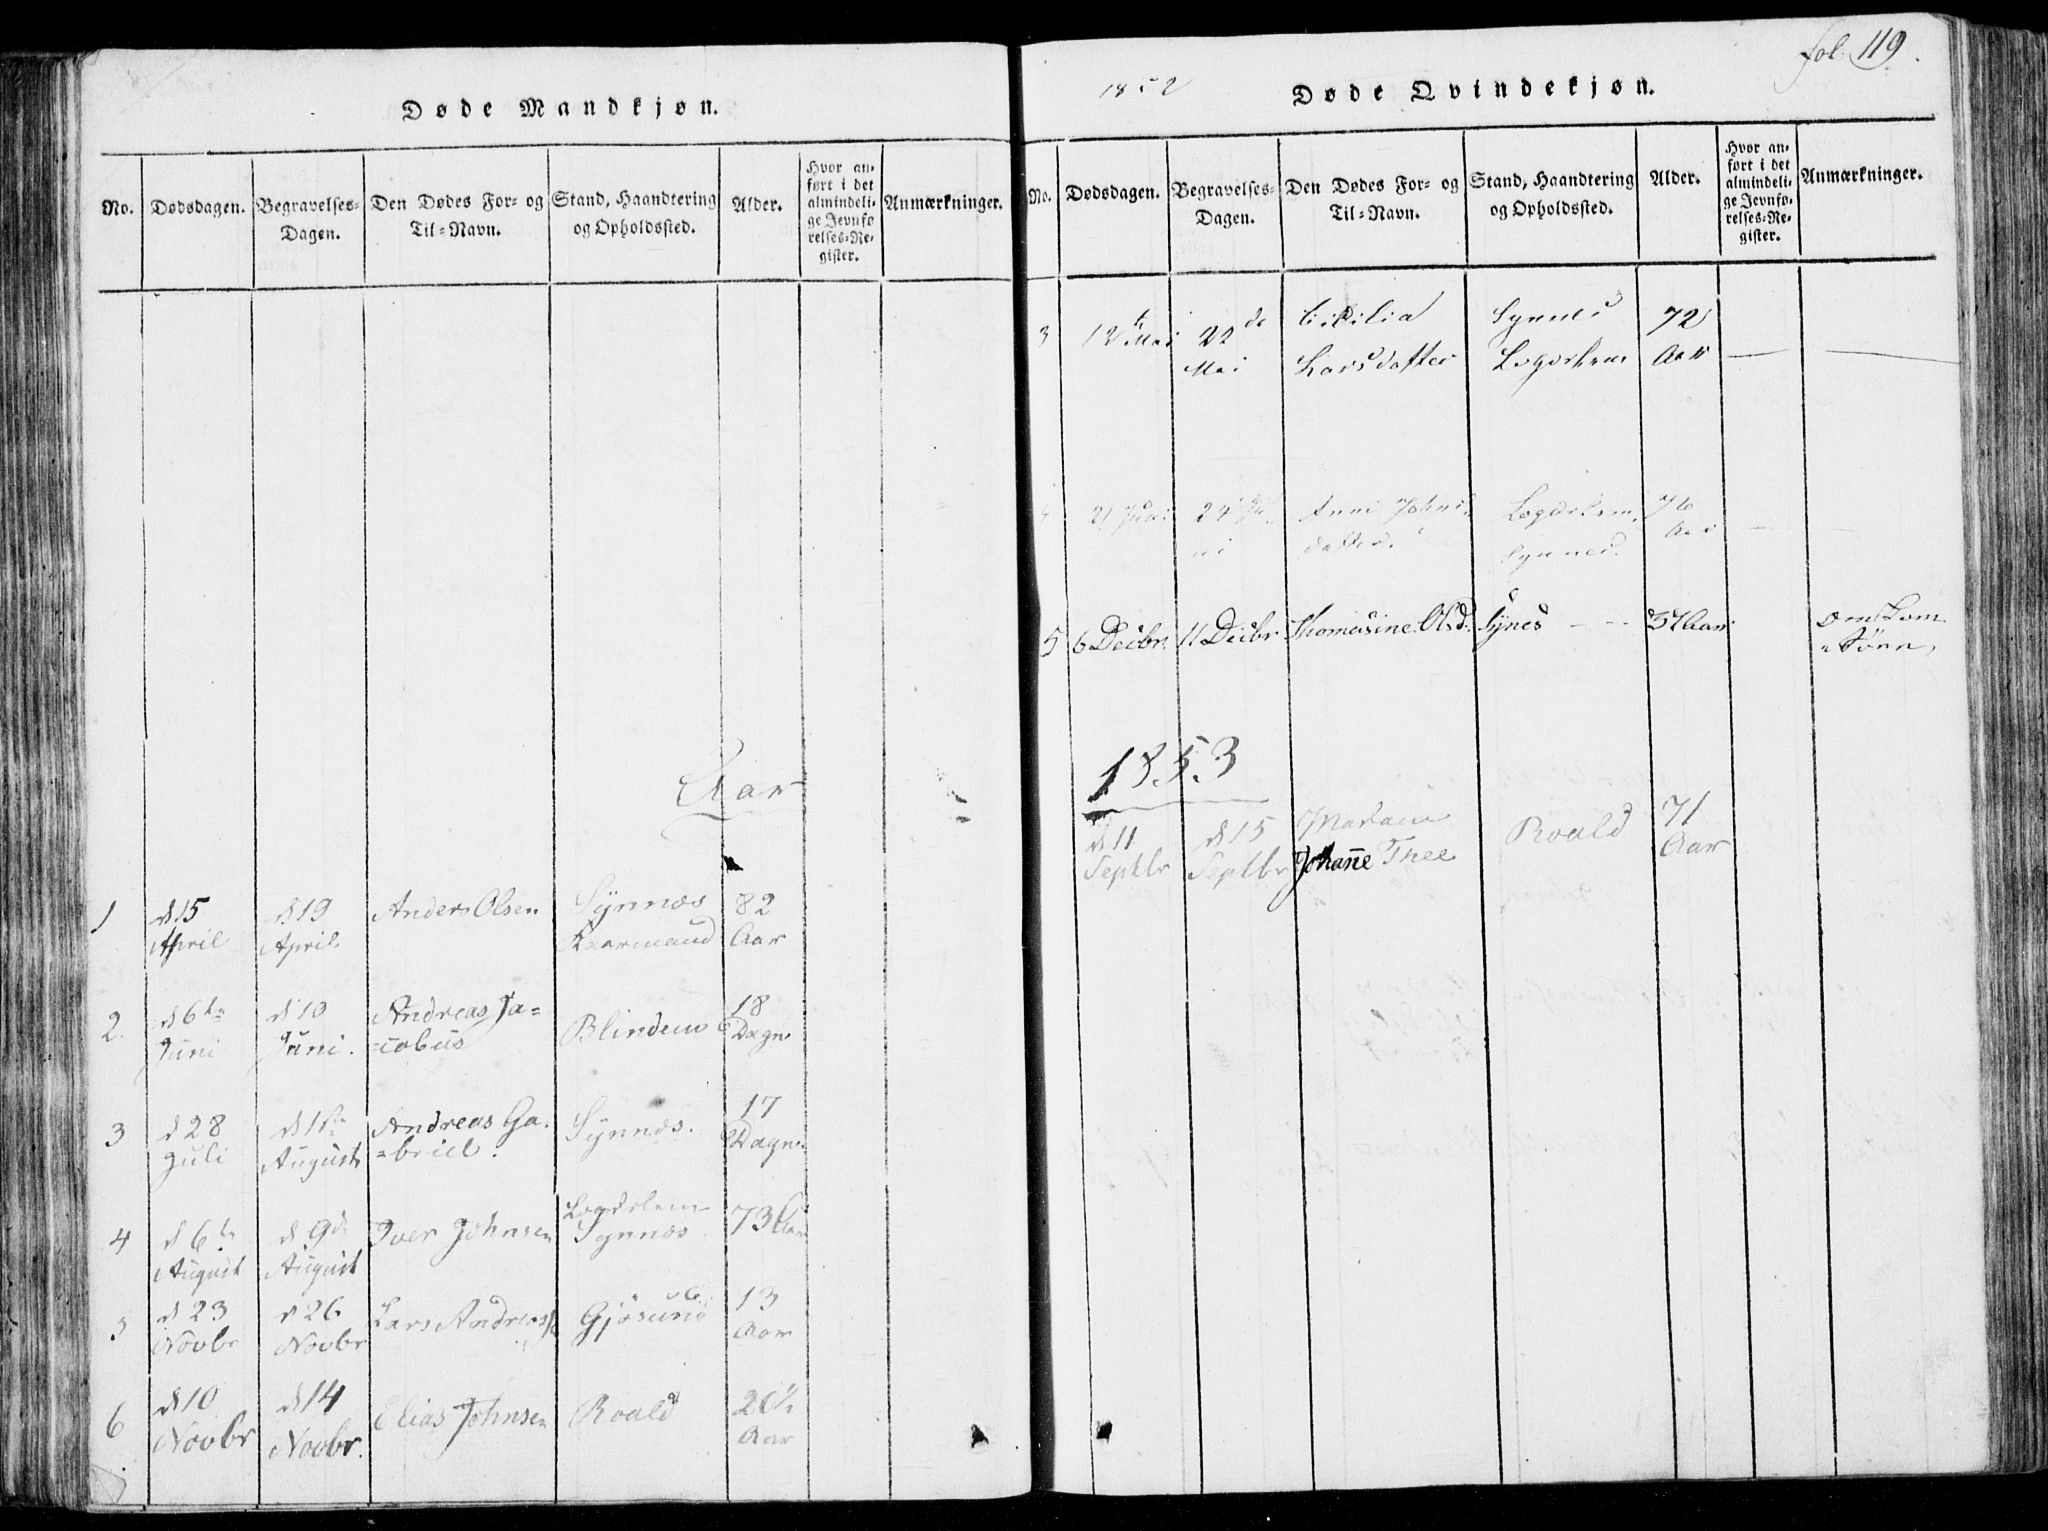 Døde Mandkjøn.
No.
Dødsdagen.
Begravelses-
Dagen.
Den Dødes For- og
Til-Navn.
Stand, Haandtering
og Opholdssted.
Alder.
Hvor an-
ført i det
almindeli-
ge Jevnfø
relses-Re-
gister.
Anmærkninger.
Aar
1
d 15
April
d 19
April
Anders Olsen
Synnæs
Kaarmand
82
Aar
2.
d 6te
Juni
d 10
Juni.
Andreas Ja=
=cobus
Blindem
18
Dage
3
d 28
Juli
d 1ste
August
Andreas Ga-
=briel.
Synnæs.
17
Dage
4
d 6te
August
d 9de
August
Iver Johnsen
Synnæs
73 Aar
5
d 23
Novbr
d 26
Novbr
Lars Andreas
Gjøsund
13
Aar
6
d 10
Novbr
d 14
Novbr.
Elias Johnsen
Roald
20½
Aar
fol. 119.
1852
Døde Qvindekjøn.
No.
Dødsdagen.
Begravelses-
Dagen.
Den Dødes For- og
Til-Navn.
Stand, Haandtering
og Opholdssted.
Alder.
Hvor an-
ført i det
almindeli-
ge Jevnfø-
relses-Re-
gister.
Anmærkninger.
3
12te Mai
22de
Mai
Cicilia
Larsdatter
Synnes
72
Aar
4
21 Juni
24 Ju-
ni
Anne Johns-
datter.
Synnes.
76
Aar
5
6 Decbr.
11 Decbr
Thomasine Olsd.
Synes
37 Aar
Omkom
Søen
1853
d 11
Septbr
d 15
Septbr
Madam
Johanne Thee
Roald
71
Aar